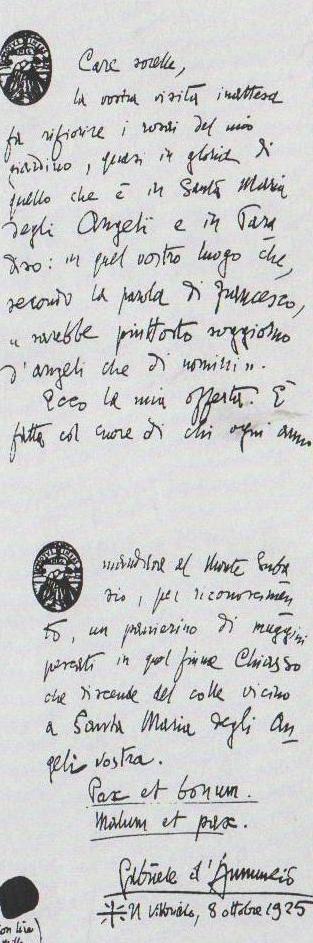 Care sorelle,
la vostra visita inattesa
fa rifiorire i rosai del mio
giardino, quasi in gloria di
quello che è in Santa Maria
degli Angeli e in Para
diso: in quel vostro luogo che,
secondo la parola di Francesco,
"sarebbe piuttosto soggiorno
d'angeli che di uomini".
Ecco la mia offerta. È
fatta col cuore di chi ogni anno
al Monte Suba
sio, per riconoscimen
to, un panierino di
pescati in quel fiume Chiascio
che discende del colle vicino
a Santa Maria degli An
geli vostra.
Pax et bonum.
Malum et pax.
Gabriele d'Annunzio
Il Vittoriale, 8 ottobre 1925